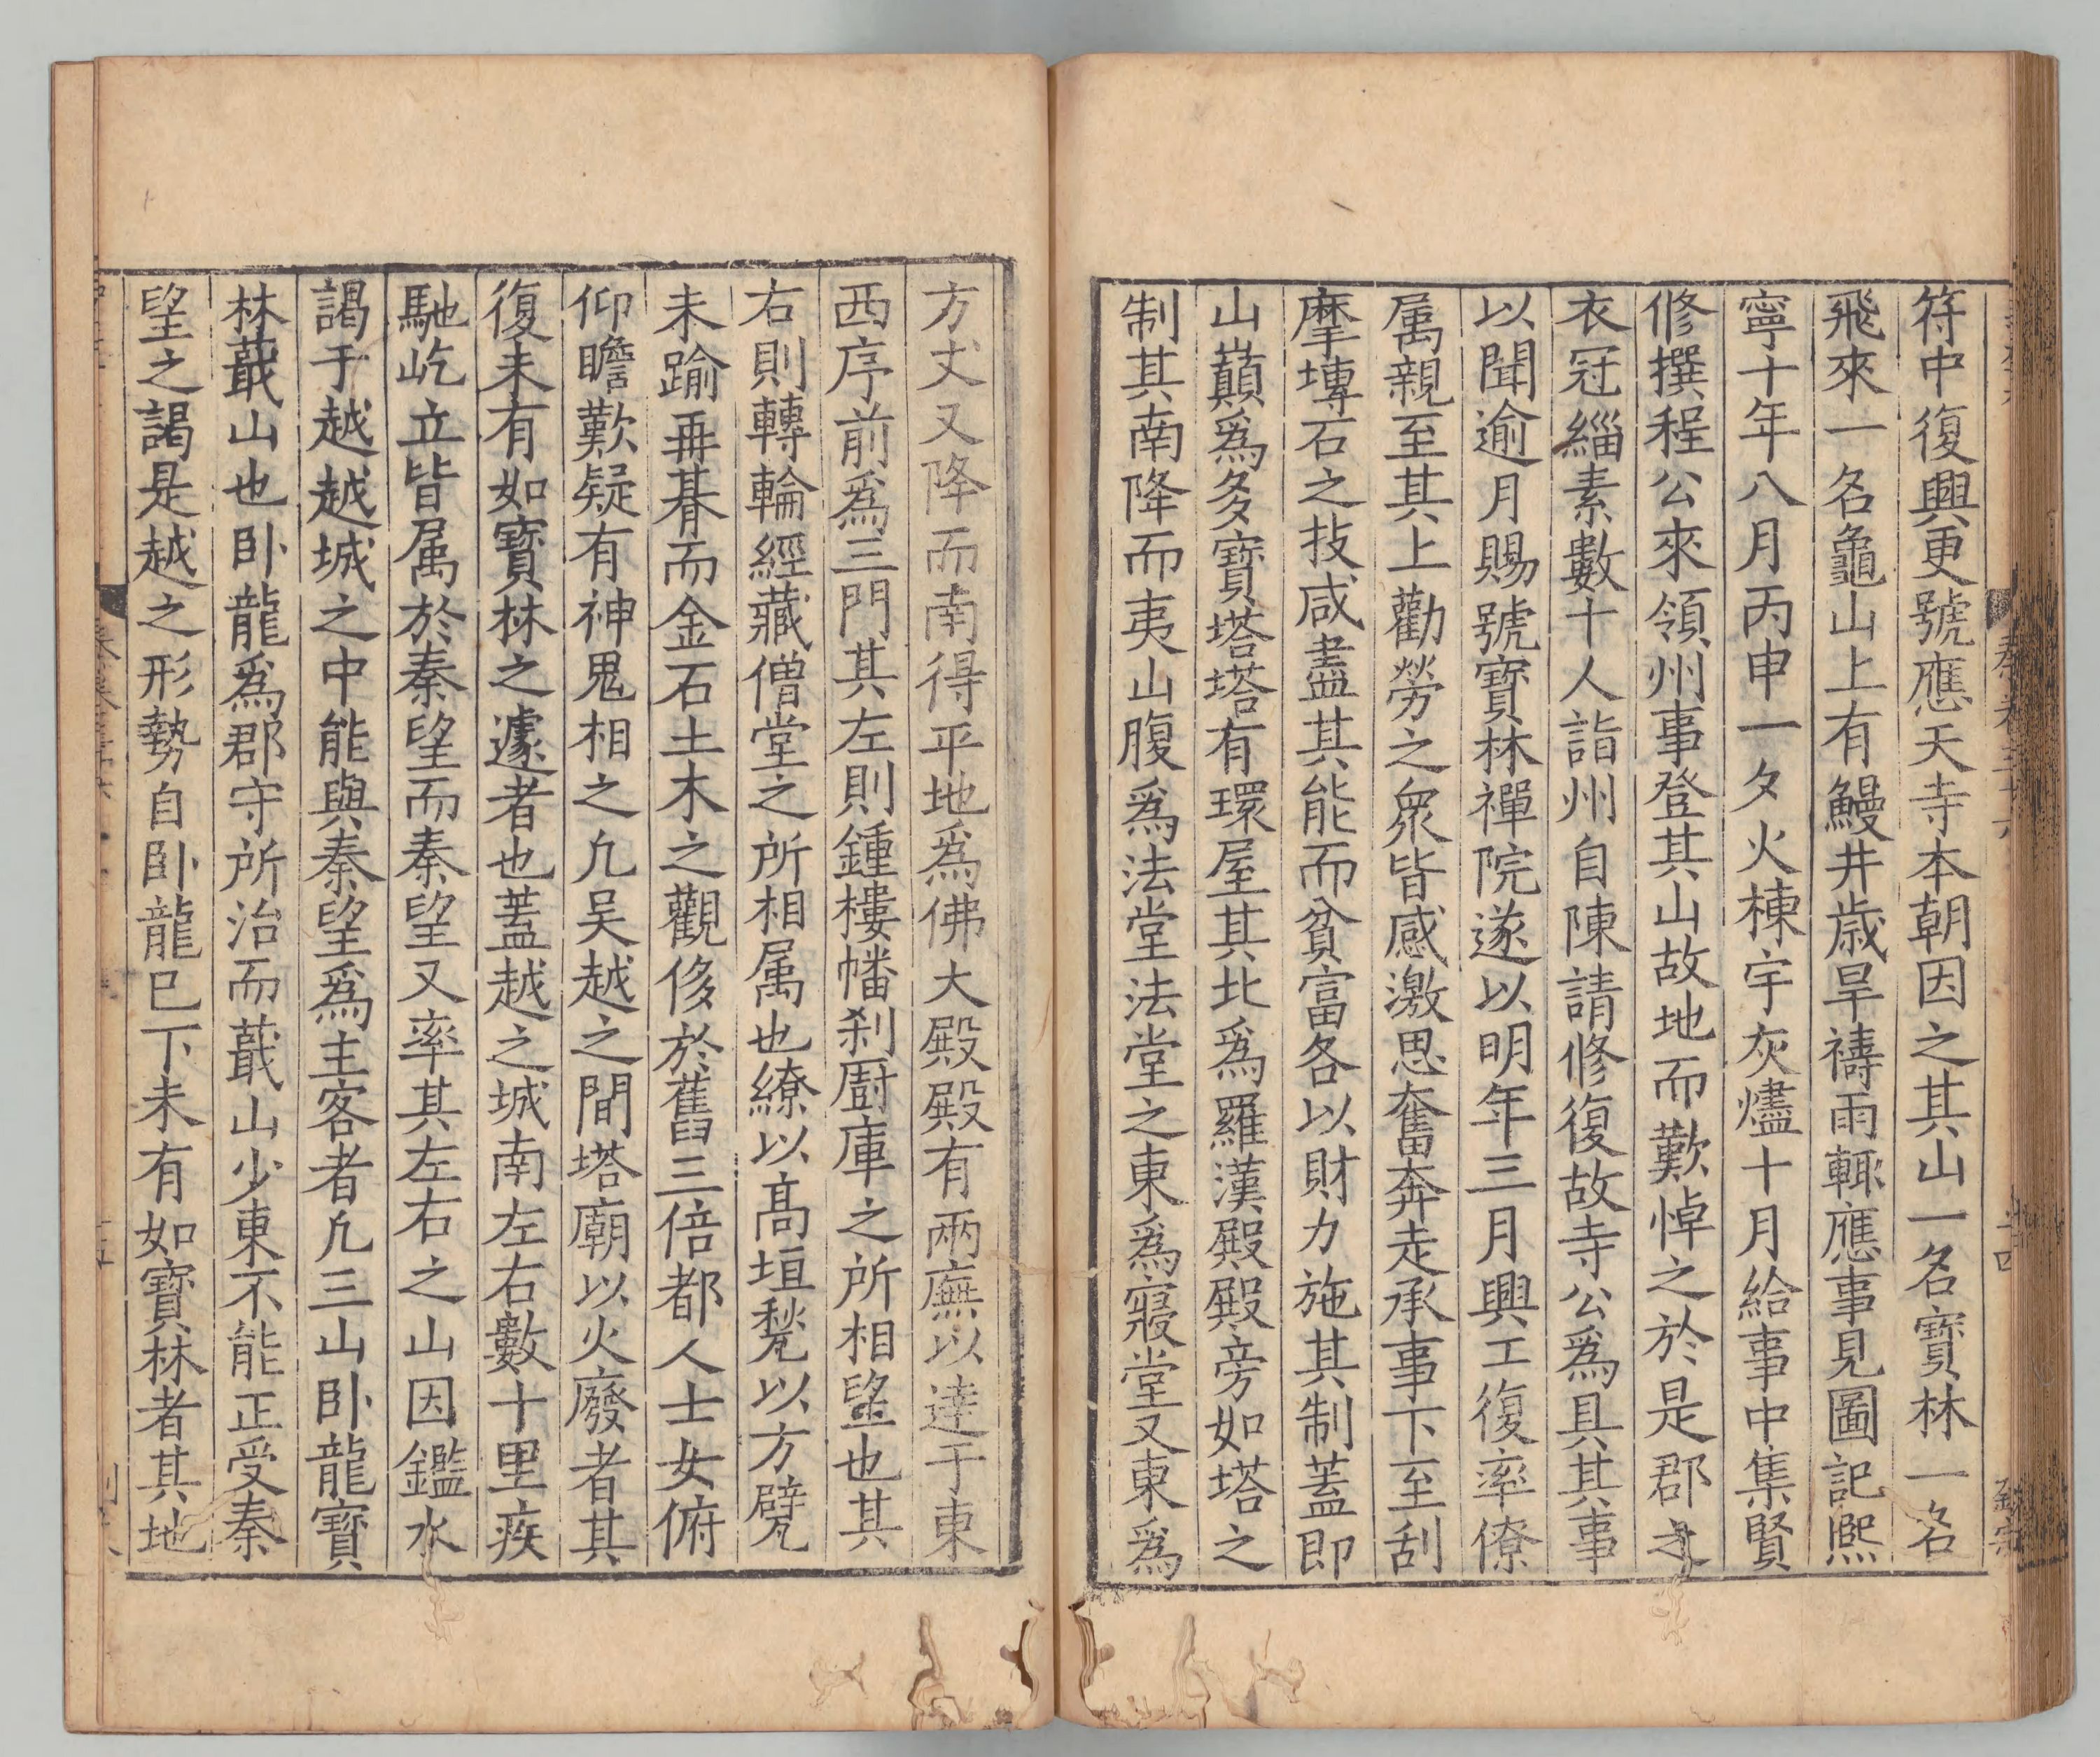 符中復興更號應天寺本朝因之其山一名寶林一名
飛來一名龜山上有鰻井歲旱禱雨輒應事見圖記熈
寧十年八月丙申一夕火棟宇灰燼十月給事中集賢
修撰程公來領州事登其山故地而歎悼之於是郡之
衣冠緇素數十人詣州自陳請修復故寺公爲具其事
以聞逾月賜號寶林禪院遂以明年三月興工復率僚
属親至其上勸勞之衆皆感激思奮奔走承事下至刮
摩塼石之技咸盡其能而貧富各以財力施其制蓋即
山巔爲多寶塔塔有環屋其北爲羅漢殿殿旁如塔之
制其南降而夷山腹爲法堂法堂之東爲寢堂又東爲
方丈又降而南得平地爲佛大殿殿有兩廡以達于東
西序前爲三門其左則鍾樓幡刹厨庫之所相望也其
右則轉輪經藏僧堂之所相属也繚以高垣甃以方甓
未踰再朞而金石土木之觀侈於舊三倍都人士女俯
仰瞻歎疑有神鬼相之凢吴越之間塔廟以火廢者其
復未有如寶林之遽者也蓋越之城南左右數十里疾
馳屹立皆属於秦望而秦望又率其左右之山因鑑水
謁于越越城之中能與秦望爲主客者凢三山卧龍寶
林蕺山也卧龍爲郡守所治而蕺山少東不能正受秦
望之謁是越之形勢自卧龍已下未有如寶林者其地